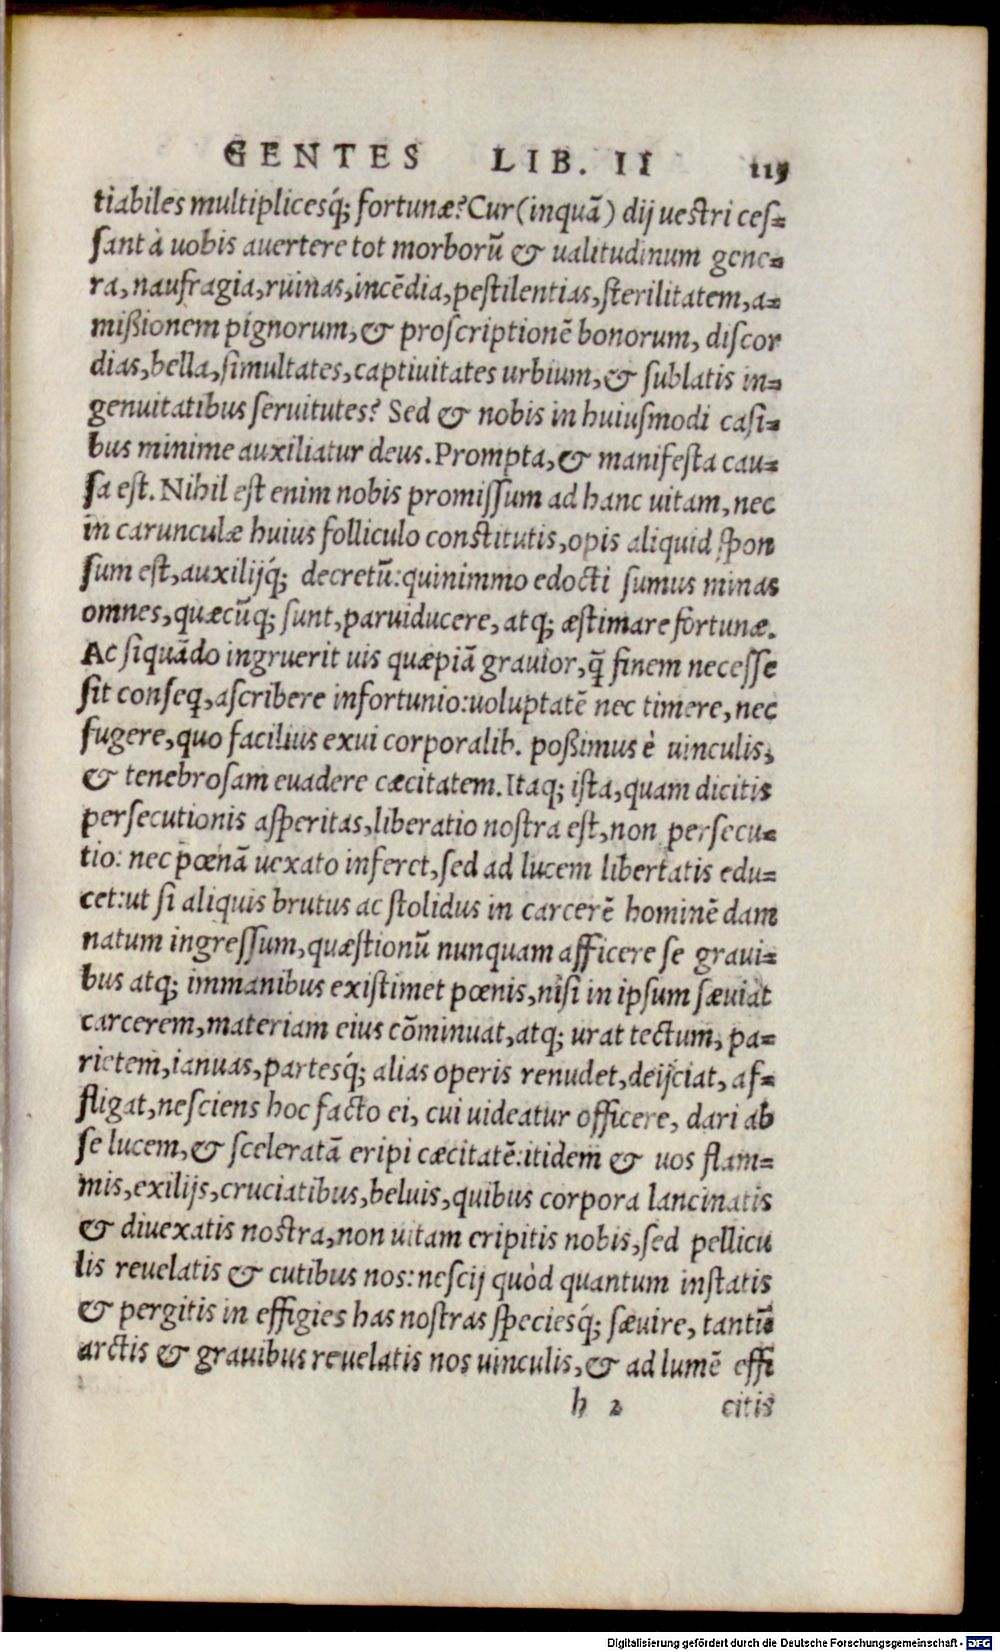 GENTES LIB. II 115
tiabiles multiplicesq́; fortunæ? Cur (inquā) dij uestri ces-
sant à uobis auertere tot morborū & ualitudinum gene-
ra, naufragia, ruinas, incēdia, pestilentias, sterilitatem, a-
mißionem pignorum, & proscriptionē bonorum, discor
dias, bella, simultates, captiuitates urbium, & sublatis in-
genuitatibus seruitutes? Sed & nobis in huiusmodi casi-
bus minime auxiliatur deus. Prompta, & manifesta cau-
sa est. Nihil est enim nobis promissum ad hanc uitam, nec
in carunculæ huius folliculo constitutis, opis aliquid spon
sum est, auxilijq́; decretū: quinimmo edocti sumus minas
omnes, quæcūq; sunt, paruiducere, atq; æstimare fortunæ.
Ac siquādo ingruerit uis quæpiā grauior, q̄ finem necesse
sit conseq, ascribere infortunio: uoluptatē nec timere, nec
fugere, quo facilius exui corporalib. poßimus è uinculis,
& tenebrosam euadere cæcitatem. Itaq; ista, quam dicitis
persecutionis asperitas, liberatio nostra est, non persecu-
tio: nec pœnā uexato inferet, sed ad lucem libertatis edu-
cet: ut si aliquis brutus ac stolidus in carcerē hominē dam
natum ingressum, quæstionū nunquam afficere se graui-
bus atq; immanibus existimet pœnis, nisi in ipsum sæuiat
carcerem, materiam eius cōminuat, atq; urat tectum, pa-
rietem, ianuas, partesq́; alias operis renudet, deijciat, af-
fligat, nesciens hoc facto ei, cui uideatur officere, dari ab
se lucem, & sceleratā eripi cæcitatē: itidem & uos flam-
mis, exilijs, cruciatibus, beluis, quibus corpora lancinatis
& diuexatis nostra, non uitam eripitis nobis, sed pellicu
lis reuelatis & cutibus nos: nescij quòd quantum instatis
& pergitis in effigies has nostras speciesq́; sæuire, tantū
arctis & grauibus reuelatis nos uinculis, & ad lumē effi
h 2 citis
Digitalisierung gefördert durch die Deutsche Forschungsgemeinschaft - DFG